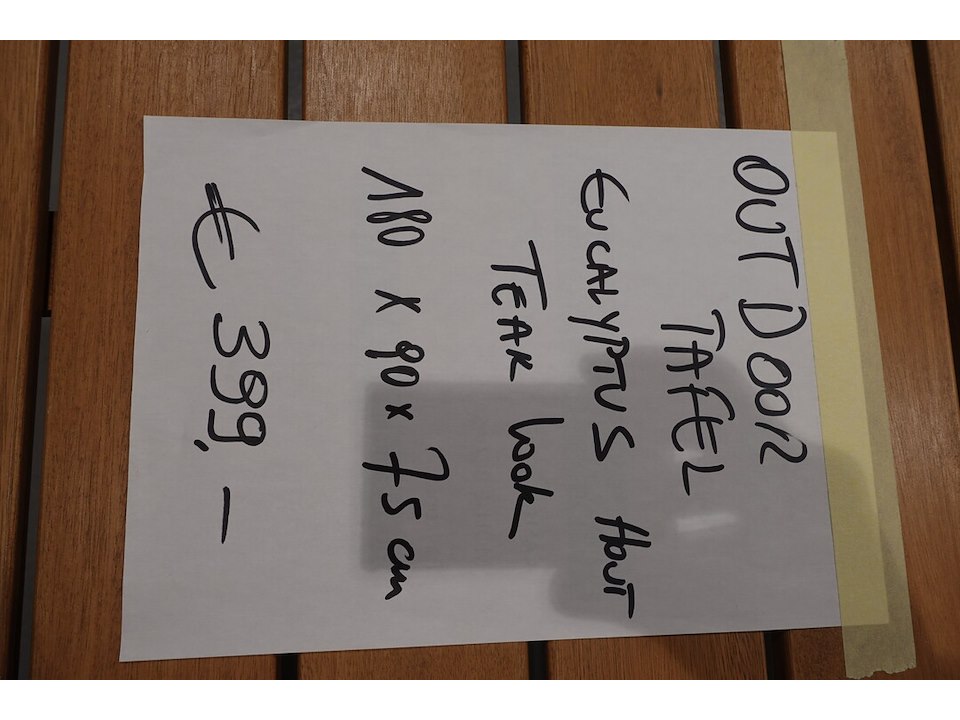 OUTDOOR
TAFEL
EUCALYPTUS HOUT
TEAK look
180 x 90 x 75 cm
€ 399,—